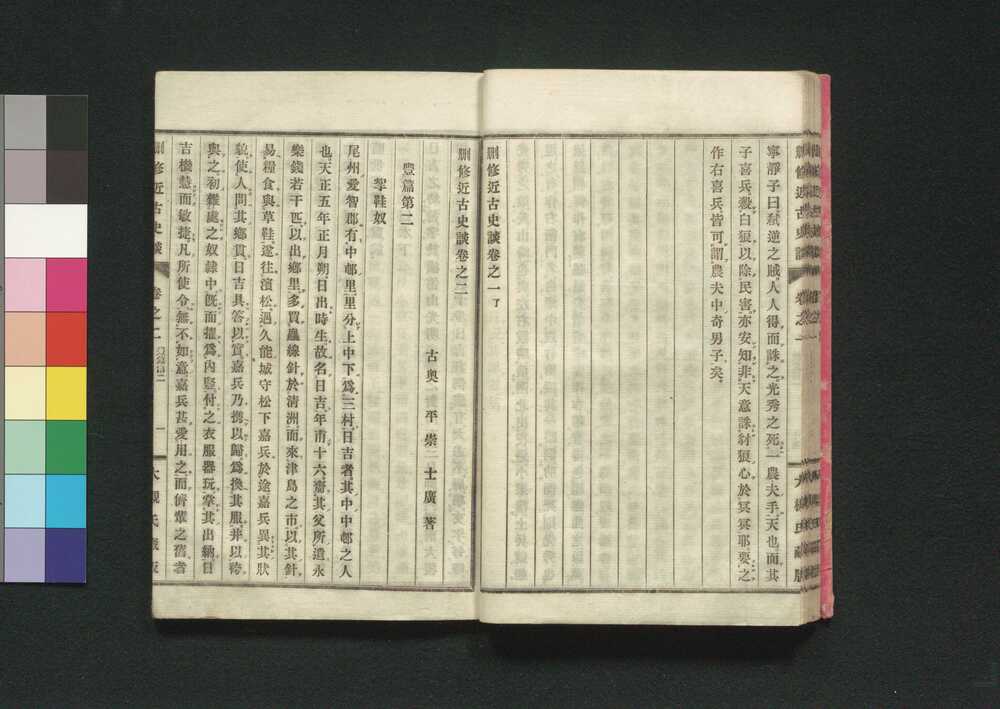 刪修近古史談
卷之一
大槻氏藏版
寧靜子曰弑逆之賊人人得而誅之光秀之死一農夫手天也而其
子喜兵殺白狼以除民害亦安知非天意誅豺狼心於冥冥耶要之
作右喜兵皆可謂農夫中奇男子矣
刪修近古史談卷之一了
刪修近古史談卷之二
古奧 平崇二士廣著
豐篇第二
挈鞋奴
尾州愛智郡有中邨里里分上中下爲三村日吉者其中中邨之人
也天正五年正月朔日出時生故名日吉年甫十六齎其父所遺永
樂錢若干匹以出鄉里多買蟲線針於清洲而來津島之市以其針
易糧食與草鞋遂往濱松過久能城守松下嘉兵於途嘉兵異其狀
貌使人問其鄉貫日吉具答以實嘉兵乃携以歸爲換其服幷以袴
與之初雜處之奴隸中旣而擢爲內豎付之衣服器玩掌其出納日
吉機慧而敏捷凡所使令無不如意嘉兵甚愛用之而儕輩之舊者
刪修近古史談
卷之二
一
大槻氏藏版